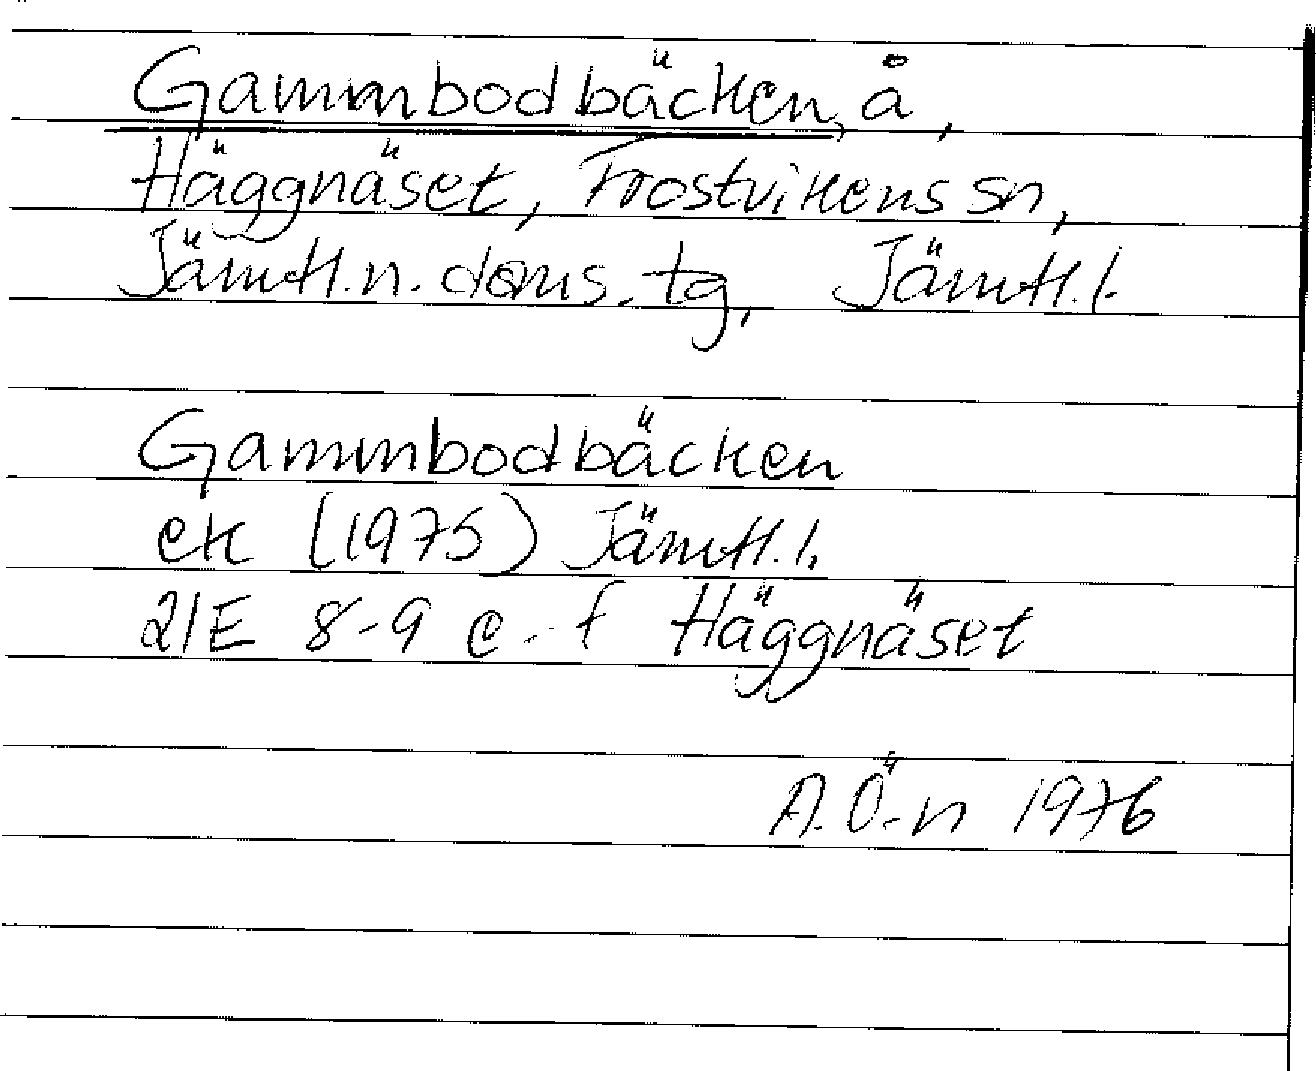 Gammbodbäcken, å,
Häggnäset, Frostvikens sn,
Jämtl.n. doms. tg, Jämtl. l.
Gammbodbäcken
ek (1975) Jämtl. l.
21E 8-9 e-f Häggnäset
A. Ö-n 1976